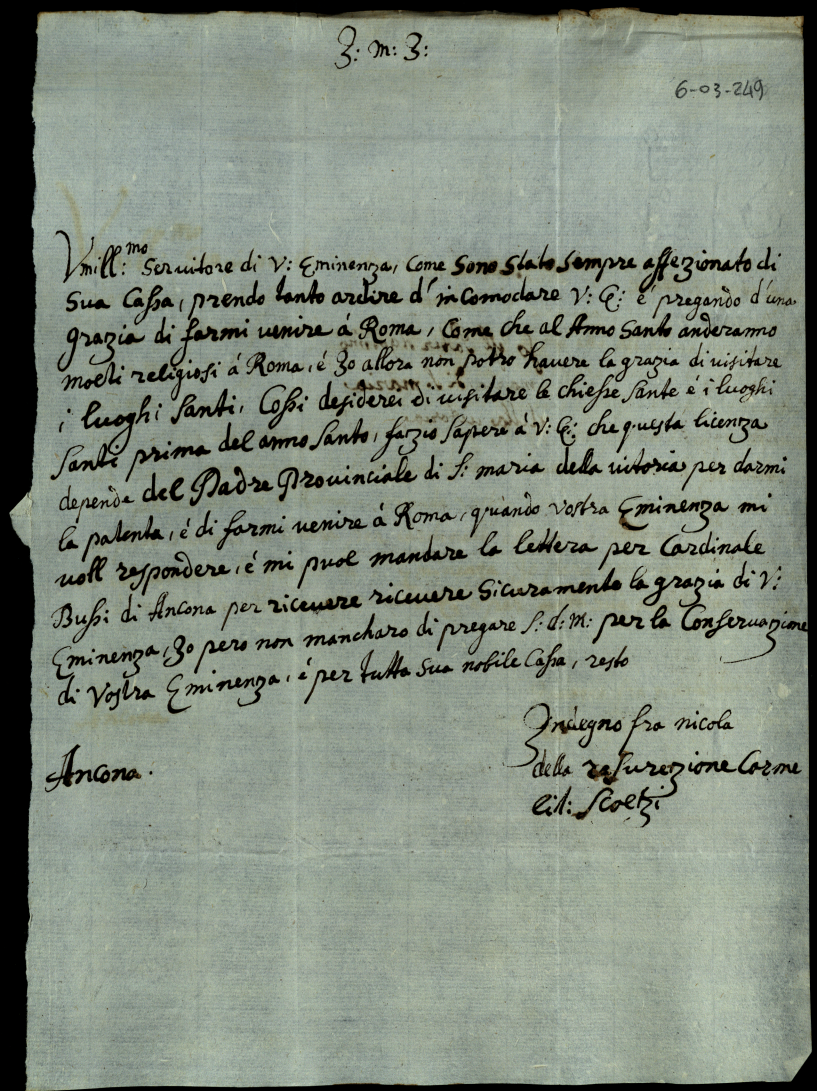 J: m: J:
6-03-249
Vmill:mo Seruitore di V: Eminenza, Come Sono Stato Sempre affezionato di
Sua Cassa, prendo tanto ardire d' incomodare V: E: é pregando d'una
grazia di farmi uenire á Roma, Come che al Anno Santo anderanno
molti religiosi á Roma, é Jo allora non potro hauere la grazia di uisitare
i luoghi Santi, Cossi desiderei di uisitare le chiesse Sante é i luoghi
Santi prima del anno Santo, fazio Sapere á V: E: che questa licenza
depende del Padre Prouinciale di S: maria della uitoria per darmi
la patenta, é di farmi uenire á Roma, quando Vostra Eminenza mi
uoll respondere, é mi puol mandare la lettera per Cardinale
Bussi di Ancona per riceuere riceuere Sicuramente la grazia di V:
Eminenza, Jo pero non mancharo di pregare S: d: M: per la Conseruazione
di Vostra Eminenza, é per tutta Sua nobile Cassa, resto
Indegno fra nicola
della resurezione Carme
Ancona.
lit: Scoltzi